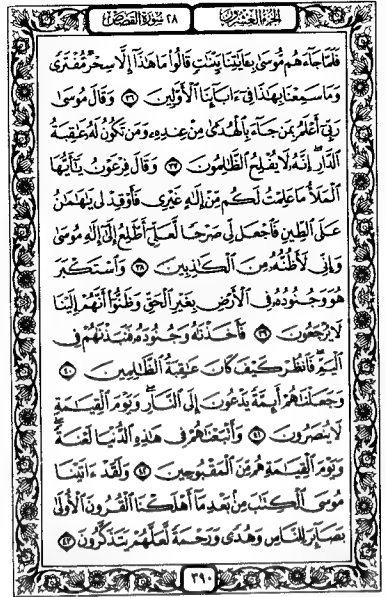 الجزء العشرون ٢٨ سورة القصص
فَلَمَّا جَآءَهُم مُّوسَىٰ بِـَٔايَـٰتِنَا بَيِّنَـٰتٍ قَالُوا۟ مَا هَـٰذَآ إِلَّا سِحْرٌ مُّفْتَرًى
وَمَا سَمِعْنَا بِهَـٰذَا فِىٓ ءَابَآئِنَا ٱلْأَوَّلِينَ ٣٦ وَقَالَ مُوسَىٰ
رَبِّىٓ أَعْلَمُ بِمَن جَآءَ بِٱلْهُدَىٰ مِنْ عِندِهِۦ وَمَن تَكُونُ لَهُۥ عَـٰقِبَةُ
ٱلدَّارِ ۖ إِنَّهُۥ لَا يُفْلِحُ ٱلظَّـٰلِمُونَ ٣٧ وَقَالَ فِرْعَوْنُ يَـٰٓأَيُّهَا
ٱلْمَلَأُ مَا عَلِمْتُ لَكُم مِّنْ إِلَـٰهٍ غَيْرِى فَأَوْقِدْ لِى يَـٰهَـٰمَـٰنُ
عَلَى ٱلطِّينِ فَٱجْعَل لِّى صَرْحًا لَّعَلِّىٓ أَطَّلِعُ إِلَىٰٓ إِلَـٰهِ مُوسَىٰ
وَإِنِّى لَأَظُنُّهُۥ مِنَ ٱلْكَـٰذِبِينَ ٣٨ وَٱسْتَكْبَرَ
هُوَ وَجُنُودُهُۥ فِى ٱلْأَرْضِ بِغَيْرِ ٱلْحَقِّ وَظَنُّوٓا۟ أَنَّهُمْ إِلَيْنَا
لَا يُرْجَعُونَ ٣٩ فَأَخَذْنَـٰهُ وَجُنُودَهُۥ فَنَبَذْنَـٰهُمْ فِى
ٱلْيَمِّ ۖ فَٱنظُرْ كَيْفَ كَانَ عَـٰقِبَةُ ٱلظَّـٰلِمِينَ ٤٠
وَجَعَلْنَـٰهُمْ أَئِمَّةً يَدْعُونَ إِلَى ٱلنَّارِ ۖ وَيَوْمَ ٱلْقِيَـٰمَةِ
لَا يُنصَرُونَ ٤١ وَأَتْبَعْنَـٰهُمْ فِى هَـٰذِهِ ٱلدُّنْيَا لَعْنَةً ۖ
وَيَوْمَ ٱلْقِيَـٰمَةِ هُم مِّنَ ٱلْمَقْبُوحِينَ ٤٢ وَلَقَدْ ءَاتَيْنَا
مُوسَى ٱلْكِتَـٰبَ مِنۢ بَعْدِ مَآ أَهْلَكْنَا ٱلْقُرُونَ ٱلْأُولَىٰ
بَصَآئِرَ لِلنَّاسِ وَهُدًى وَرَحْمَةً لَّعَلَّهُمْ يَتَذَكَّرُونَ ٤٣
٣٩٠